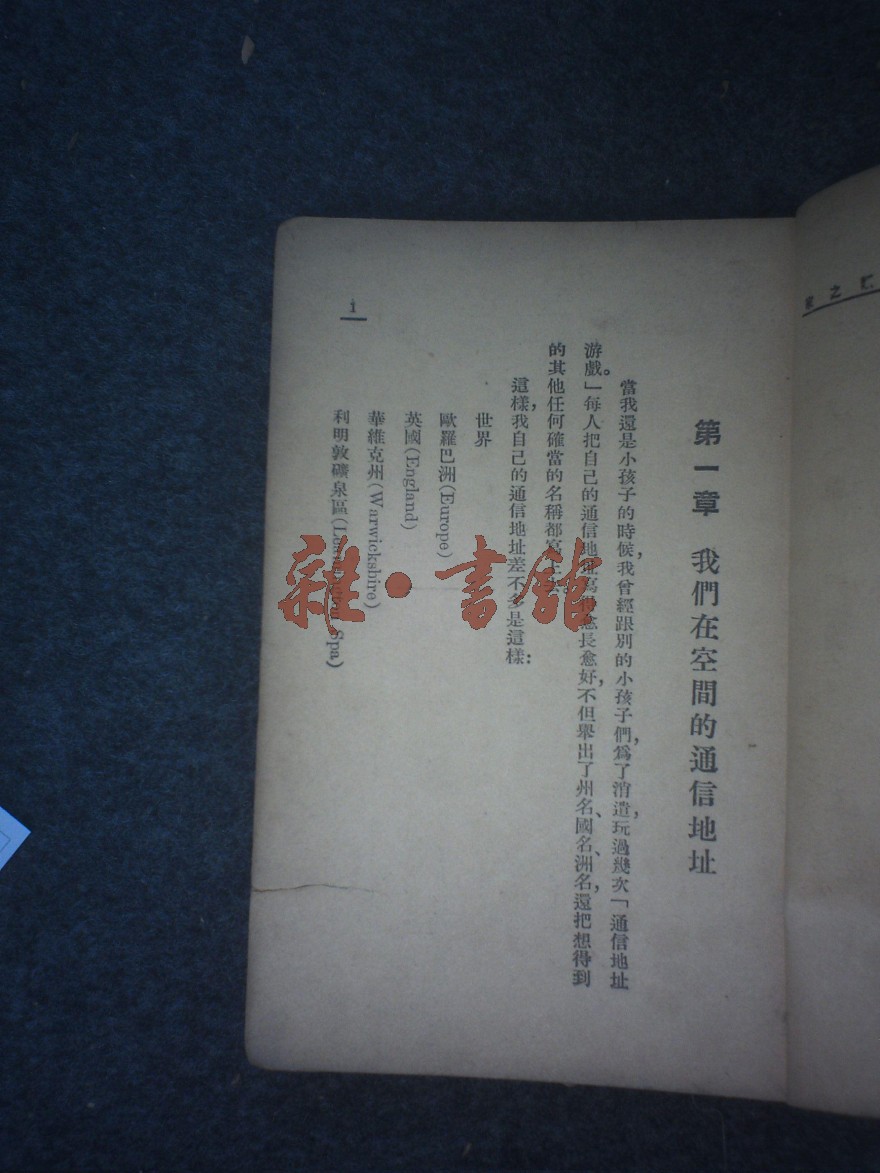 第一章 我們在空間的通信地址
當我還是小孩子的時候，我曾經跟別的小孩子們，爲了消遣，玩過幾次「通信地址
游戲。」每人把自己的通信地址寫得愈長愈好，不但舉出了州名、國名、洲名，還把想得到
的其他任何確當的名稱都寫上
這樣，我自己的通信地址差不多是這樣：
世界
歐羅巴洲(Europe)
英國(England)
華維克州(Warwickshire)
利明敦礦泉區( Spa)
1
之
雜·書館